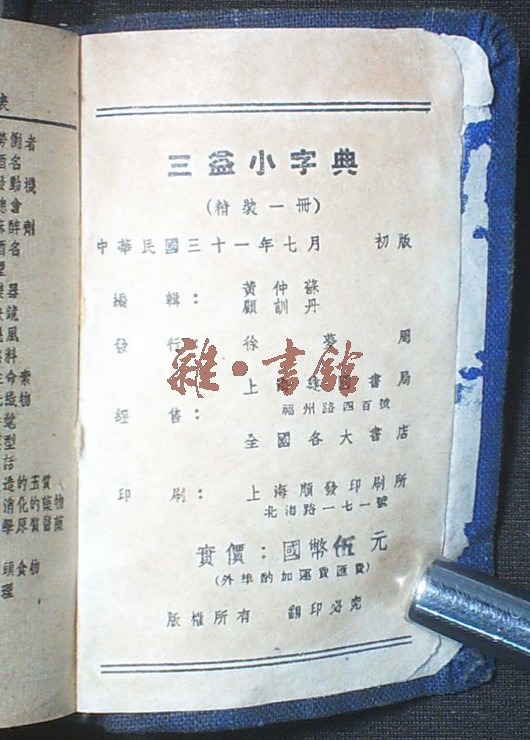 三益小字典
(精裝一冊)
中華民國三十一年七月 初版
編輯：黃仲蘇
顧訓丹
發行：徐夢周
上海建國書局
經售：福州路四百號
全國各大書店
印刷：上海順發印刷所
北泊路一七一號
實價：國幣伍元
(外埠酌加運費匯費)
版權所有 翻印必究
雜·書館
表
勞働者
酒名
發動機
總會
麻醉劑
酒名
器
龍
風
料
生命素
織物
號
型
話
造的玉質
消化的藥物
學原質醫藥
頭食物
理